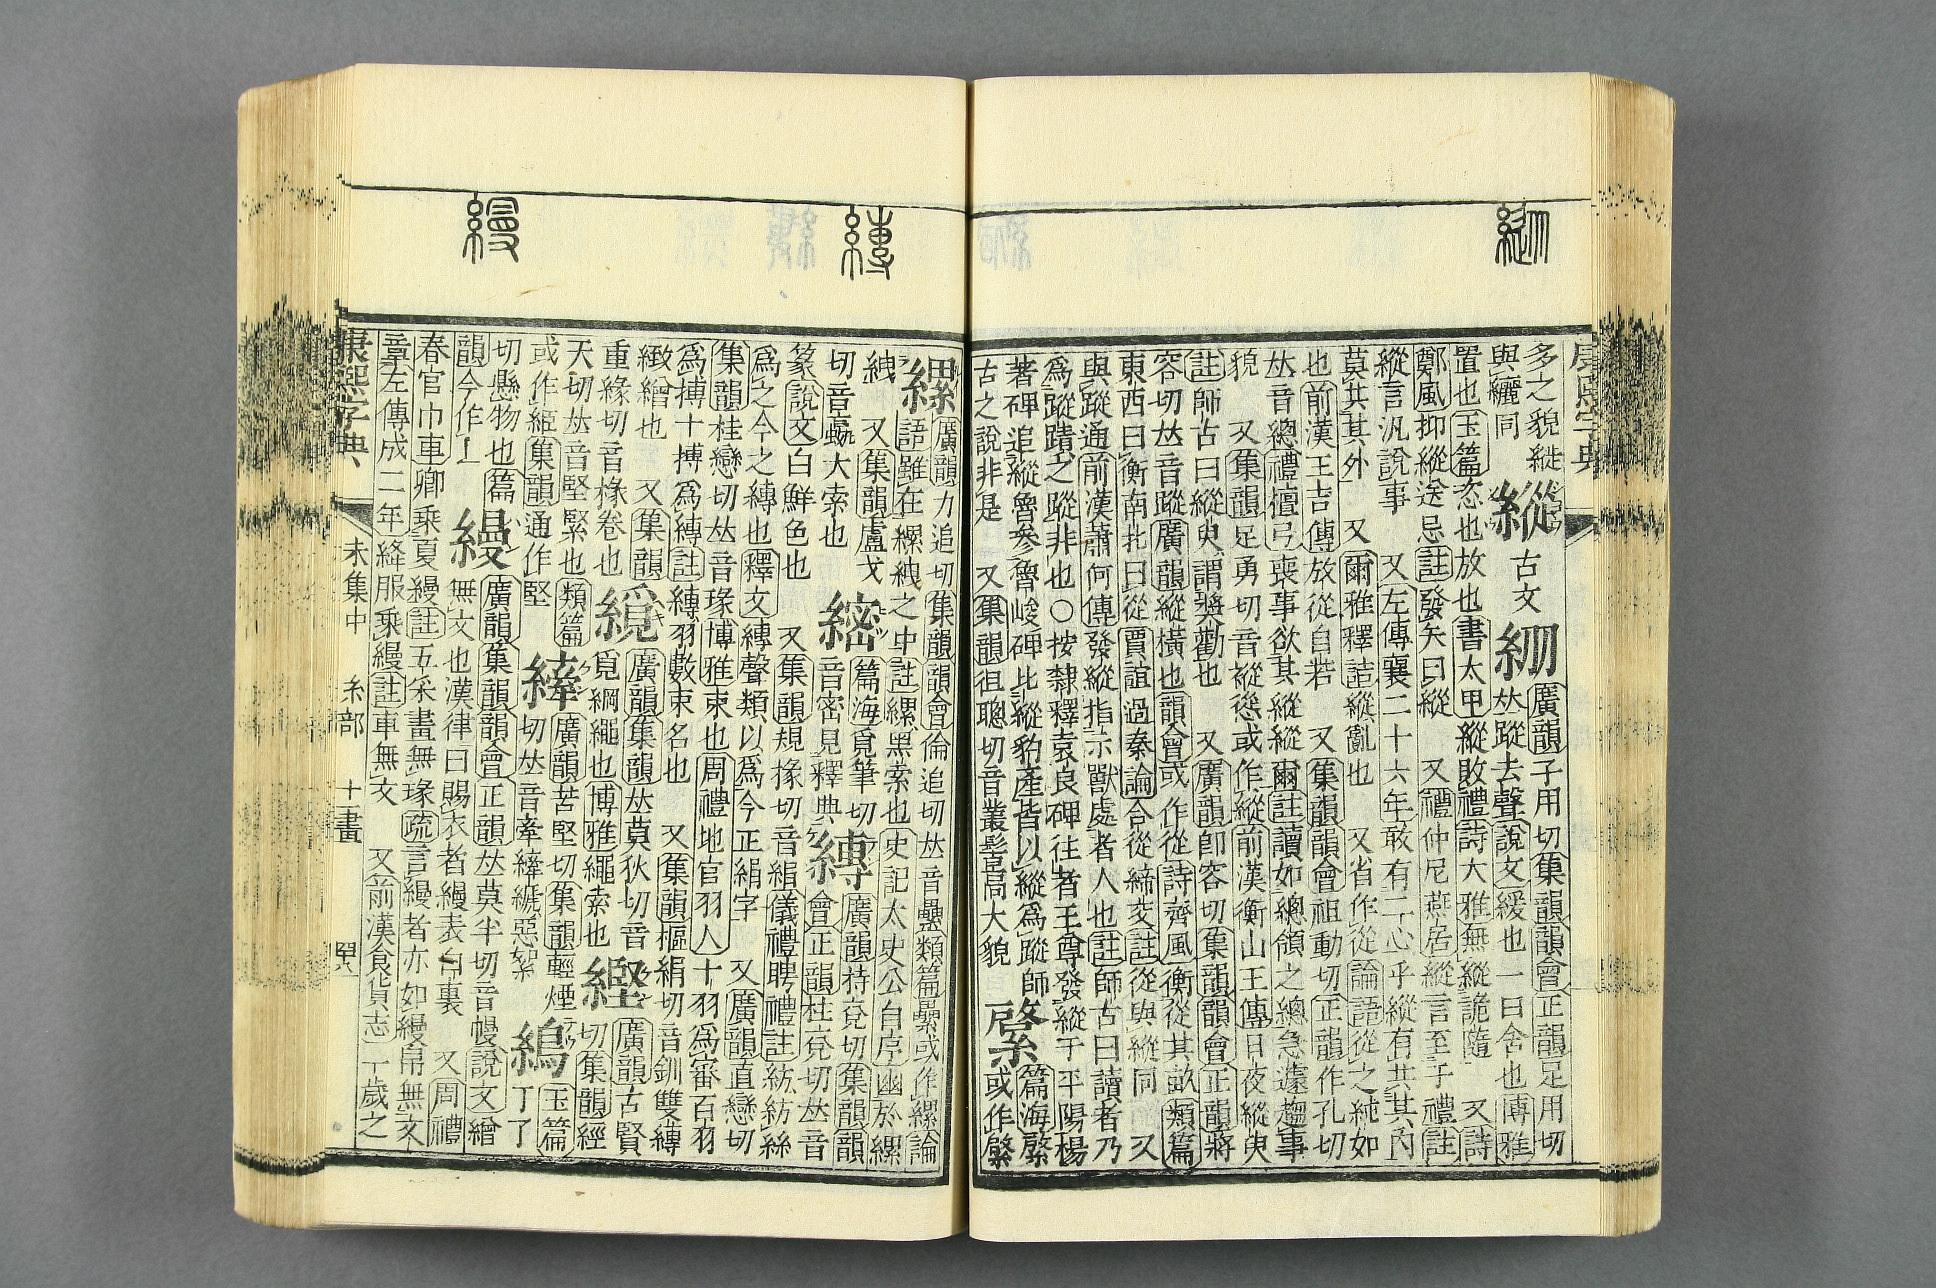 多之貌縰
與纚同
縱
古文
𠕁
廣韻子用切集韻韻會正韻足用切
𠀤蹤去聲說文緩也一曰舍也博雅
置也玉篇恣也放也書太甲縱敗禮詩大雅無縱詭隨 又詩
鄭風抑縱送忌註發矢曰縱 又禮仲尼燕居縱言至于禮註
縱言汎說事 又左傳襄二十六年敢有二心乎縱有共其內
莫共其外 又爾雅釋詁縱亂也 又省作從論語從之純如
也前漢王吉傳放從自若 又集韻韻會祖動切正韻作孔切
𠀤音總禮檀弓喪事欲其縱縱爾註讀如總領之總急遽趨事
貌 又集韻足勇切音樅慫或作縱前漢衡山王傳日夜縱臾
註師古曰縱臾謂奬勸也 又廣韻卽容切集韻韻會正韻將
容切𠀤音蹤廣韻縱橫也韻會或作從詩齊風衡從其畝類篇
東西曰衡南北曰從賈誼過秦論合從締交註從與縱同 又
與蹤通前漢蕭何傳發縱指示獸處者人也註師古曰讀者乃
爲蹤蹟之蹤非也○按隷釋袁良碑往者王尊發縱于平陽楊
著碑追縱曾參魯峻碑比縱豹產皆以縱爲蹤師
古之說非是 又集韻徂聰切音叢髻高大貌
篇海
或作
縲
廣韻力追切集韻韻會倫追切𠀤音壘類篇纍或作縲論
語雖在縲絏之中註縲黑索也史記太史公自序幽於縲
絏 又集韻盧戈
切音臝大索也
篇海覓筆切
音密見釋典
縳
廣韻持兗切集韻韻
會正韻柱兗切𠀤音
篆說文白鮮色也 又集韻規掾切音絹儀禮聘禮註紡紡絲
爲之今之縳也釋文縳聲類以爲今正絹字 又廣韻直戀切
集韻桂戀切𠀤音瑑博雅束也周禮地官羽人十羽爲審百羽
爲摶十摶爲縳註縳羽數束名也 又集韻樞絹切音釧雙縳
緻繒也 又集韻
重緣切音椽卷也
廣韻集韻𠀤莫狄切音
覓綱繩也博雅繩索也
緊
廣韻古賢
切集韻經
天切𠀤音堅緊也類篇
或作䋗集韻通作堅
縴
廣韻苦堅切集韻輕煙
切𠀤音牽縴縭惡絮
玉篇
丁了
切懸物也篇
韻今作
縵
廣韻集韻韻會正韻𠀤莫半切音幔說文繒
無文也漢律曰賜衣者縵表白裏 又周禮
春官巾車卿乘夏縵註五采畫無瑑疏言縵者亦如縵帛無文
章左傳成二年絳服乘縵註車無文 又前漢食貨志一歲之
康熙字典
未集中 糸部 十一畫